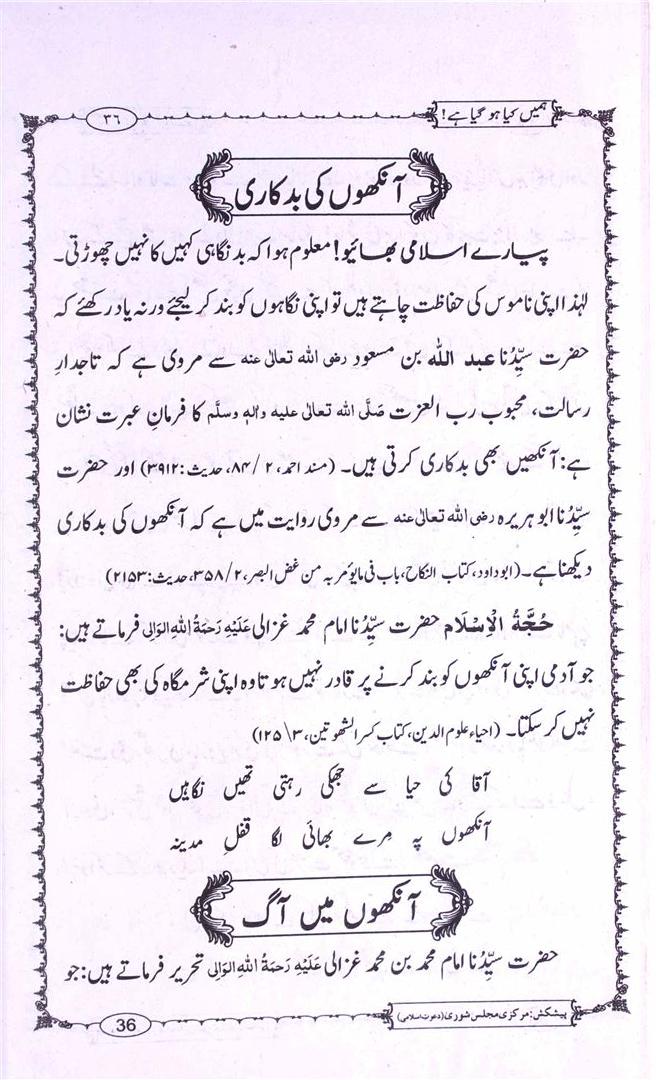 ہمیں کیا ہو گیا ہے!
۳۶
آنکھوں کی بدکاری
پیارے اسلامی بھائیو! معلوم ہوا کہ بدنگاہی کہیں کا نہیں چھوڑتی۔
لہٰذا اپنی ناموس کی حفاظت چاہتے ہیں تو اپنی نگاہوں کو بند کر لیجئے ورنہ یاد رکھئے کہ
حضرت سیِّدُنا عبد اللہ بن مسعود رضی اللہ تعالیٰ عنہ سے مروی ہے کہ تاجدارِ
رسالت، محبوب رب العزت صَلَّی اللہ تعالیٰ علیہ واٰلہٖ وسلَّم کا فرمانِ عبرت نشان
ہے: آنکھیں بھی بدکاری کرتی ہیں۔ (مسند احمد، ۲/ ۸۴، حدیث: ۳۹۱۲) اور حضرت
سیِّدُنا ابو ہریرہ رضی اللہ تعالیٰ عنہ سے مروی روایت میں ہے کہ آنکھوں کی بدکاری
دیکھنا ہے۔ (ابو داود، کتاب النکاح، باب فی مایؤمر بہ من غض البصر، ۲/ ۳۵۸، حدیث: ۲۱۵۳)
حُجَّۃُ الْاِسْلَام حضرت سیِّدُنا امام محمد غزالی عَلَیْہِ رَحمَۃُ اللہِ الوَالِی فرماتے ہیں:
جو آدمی اپنی آنکھوں کو بند کرنے پر قادر نہیں ہوتا وہ اپنی شرمگاہ کی بھی حفاظت
نہیں کر سکتا۔ (احیاء علوم الدین، کتاب کسر الشھوتین، ۳\ ۱۲۵)
آقا کی حیا سے جھکی رہتی تھیں نگاہیں
آنکھوں پہ مِرے بھائی لگا قفلِ مدینہ
آنکھوں میں آگ
حضرت سیِّدُنا امام محمد بن محمد غزالی عَلَیْہِ رَحمَۃُ اللہِ الوَالِی تحریر فرماتے ہیں: جو
پیشکش: مرکزی مجلس شوریٰ (دعوتِ اسلامی)
36